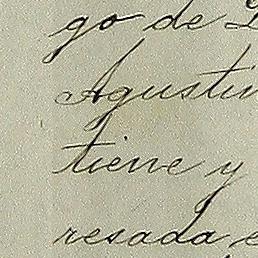 go de
Agustin
tiene y
resada e